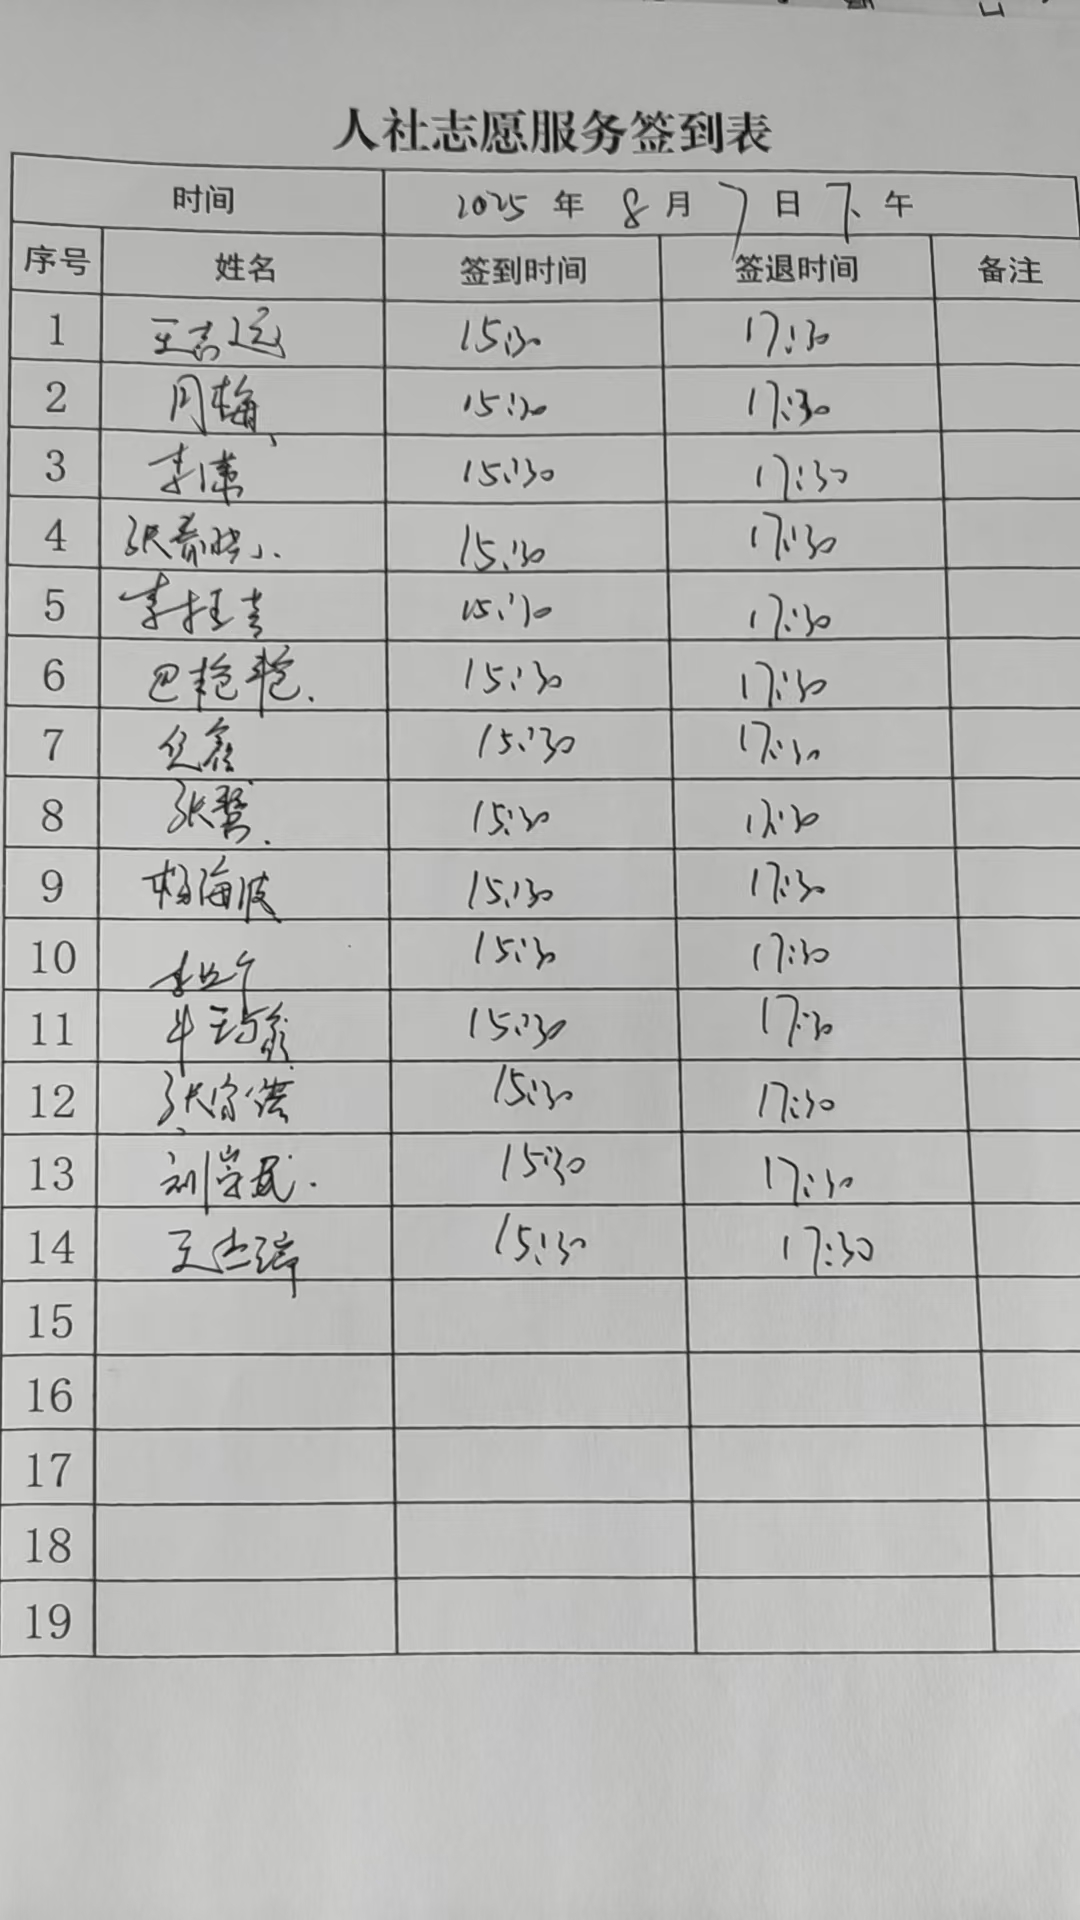 人社志愿服务签到表
时间 2025 年 8 月 7 日 下午
序号 姓名 签到时间 签退时间 备注
1 王吉运 15:30 17:30
2 周梅 15:30 17:30
3 李伟 15:30 17:30
4 张春晓 15:30 17:30
5 李 15:30 17:30
6 巴艳艳 15:30 17:30
7 15:30 17:30
8 张 15:30 17:30
9 杨海波 15:30 17:30
10 李 15:30 17:30
11 牛 15:30 17:30
12 张 15:30 17:30
13 刘 15:30 17:30
14 王杰 15:30 17:30
15
16
17
18
19